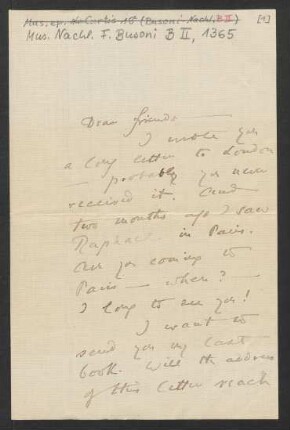 Mus. ep. de Curtis 15 (Busoni-Nachl. B II) [1]
Mus. Nachl. F. Busoni B II, 1365
Dear friends —
I wrote you
a long letter to London
— probably you never
received it. And
two months ago I saw
Raphael in Paris.
Are you coming to
Paris — when? —
I long to see you!
I want to
send you my last
book. Will the address
of this letter reach